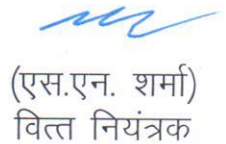 (एस.एन. शर्मा)
वित्त नियंत्रक